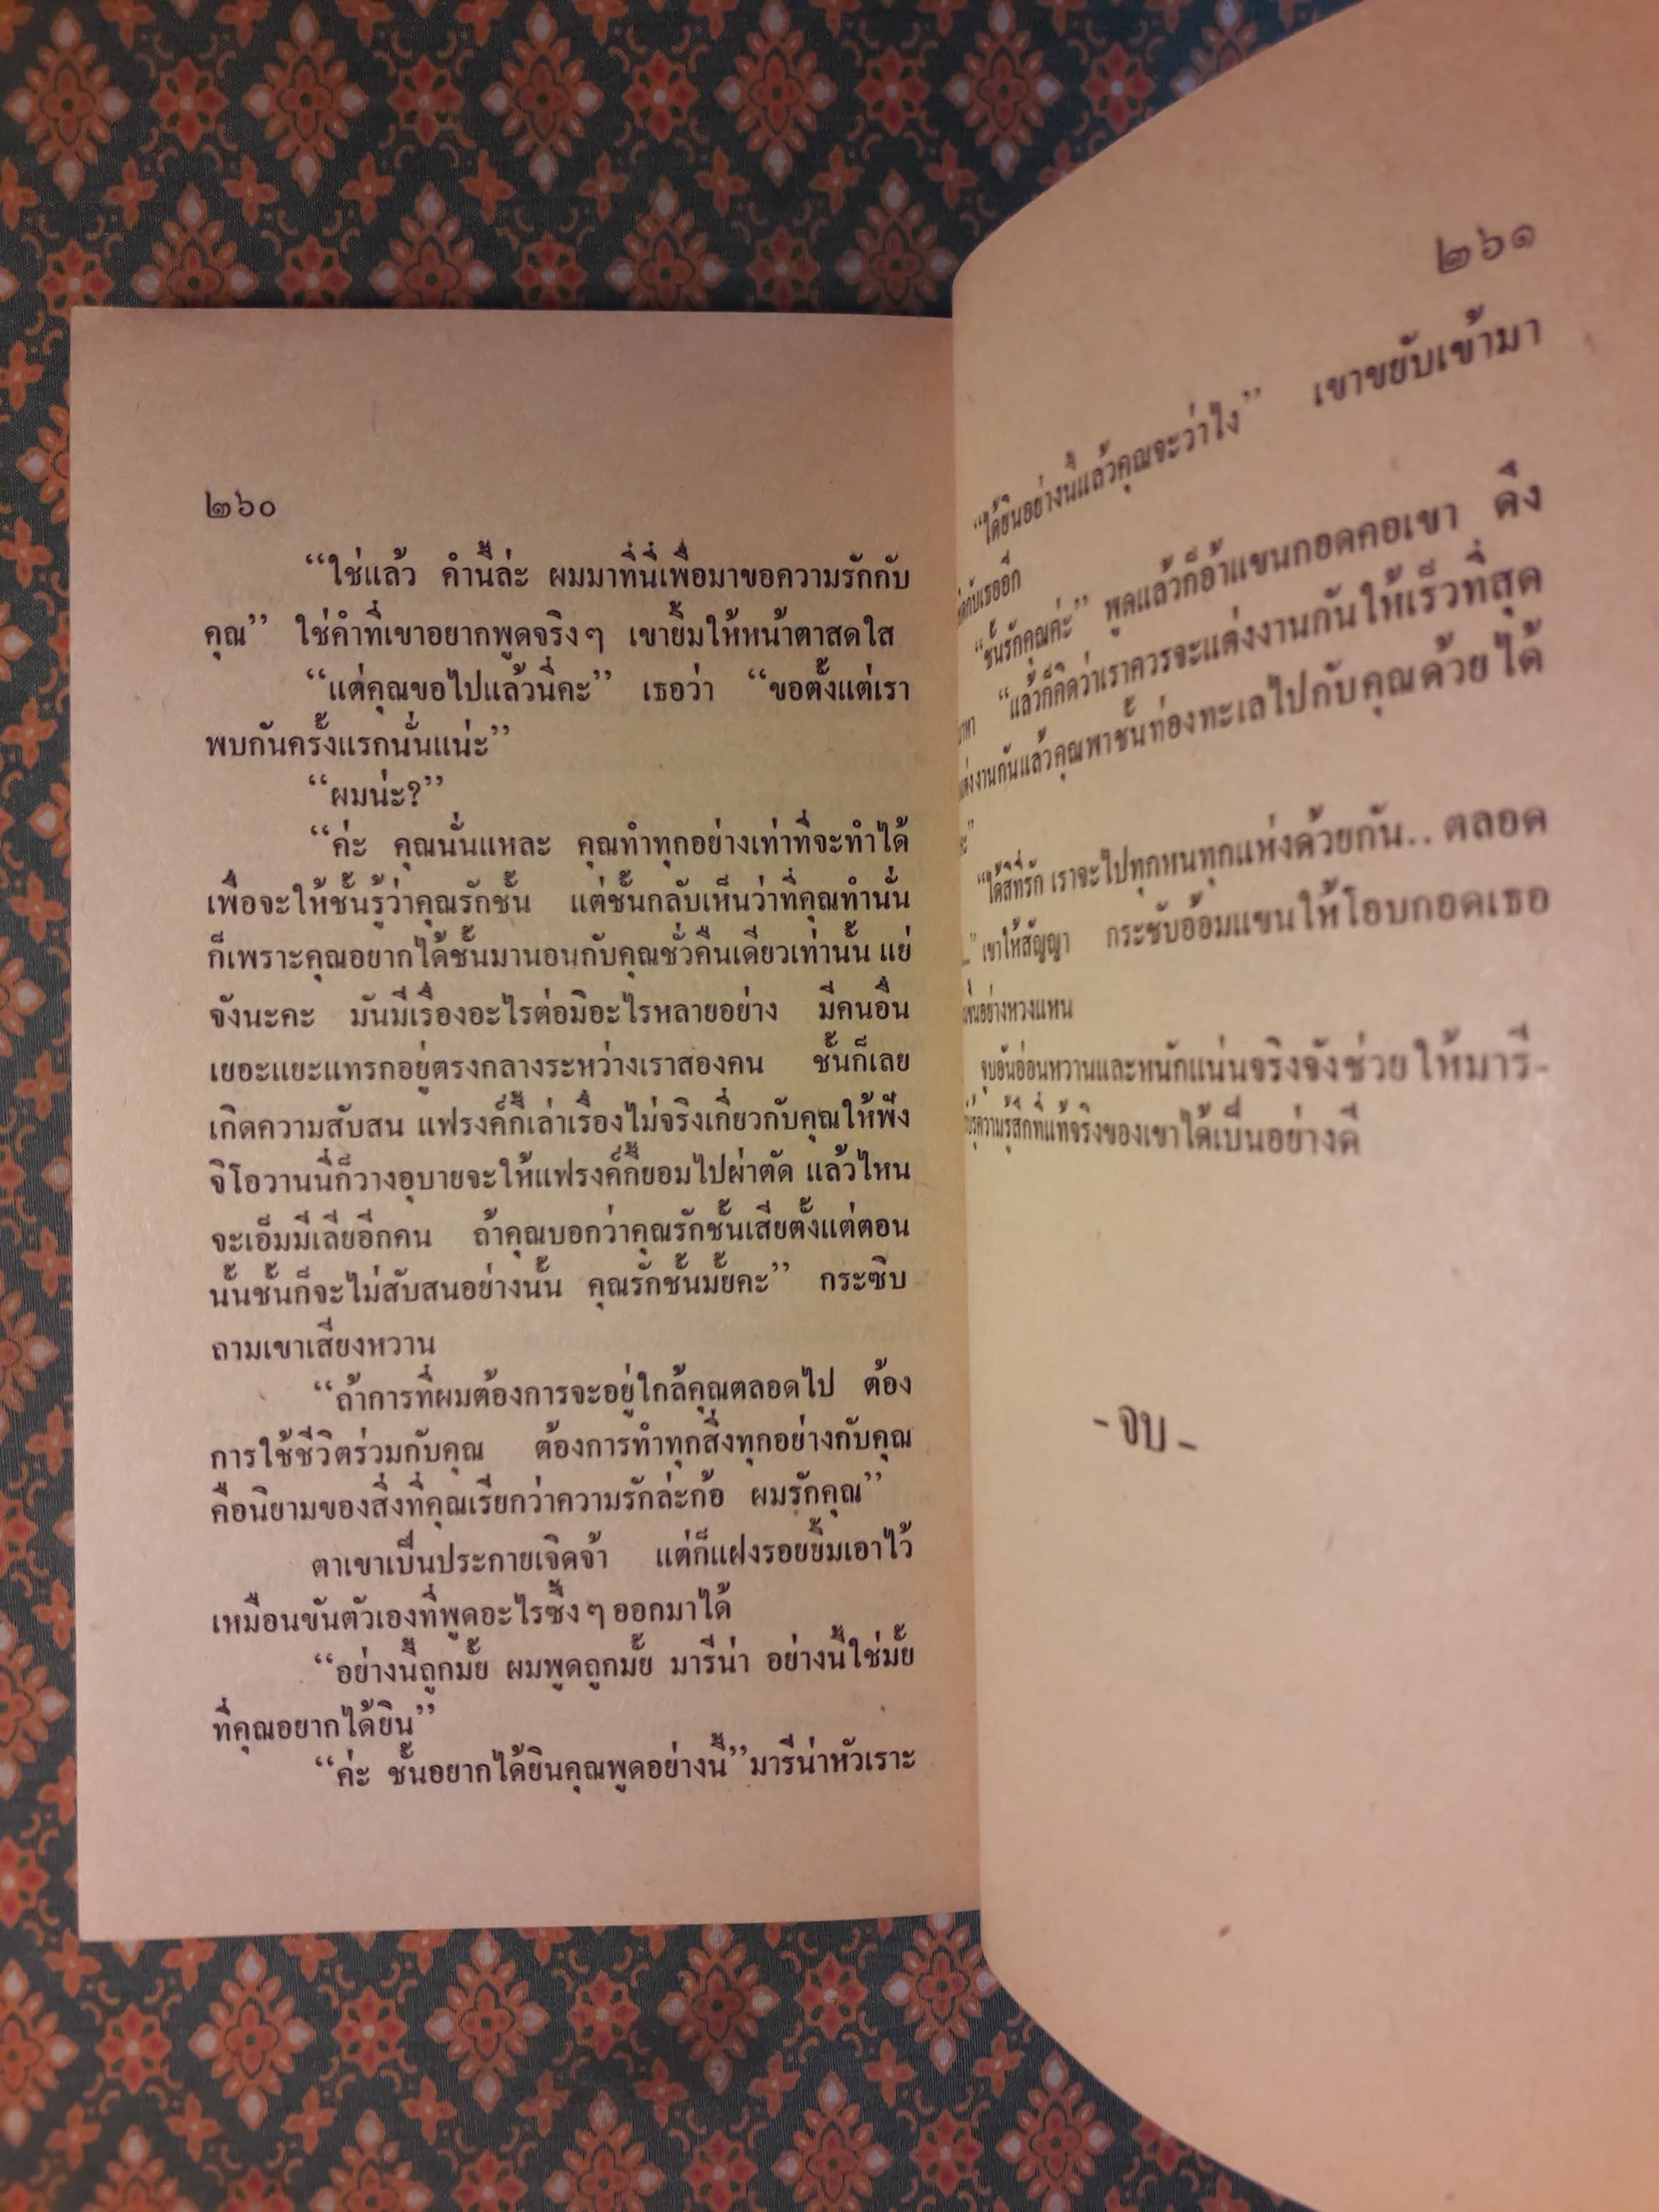 ๒๖๐
“ใช่แล้ว คำนี้ล่ะ ผมมาที่นี่เพื่อมาขอความรักกับ
คุณ” ใช่คำที่เขาอยากพูดจริงๆ เขายิ้มให้หน้าตาสดใส
“แต่คุณขอไปแล้วนี่คะ” เธอว่า “ขอตั้งแต่เรา
พบกันครั้งแรกนั่นแน่ะ”
“ผมน่ะ?”
“ค่ะ คุณนั่นแหละ คุณทำทุกอย่างเท่าที่จะทำได้
เพื่อจะให้ชั้นรู้ว่าคุณรักชั้น แต่ชั้นกลับเห็นว่าที่คุณทำนั่น
ก็เพราะคุณอยากได้ชั้นมานอนกับคุณชั่วคืนเดียวเท่านั้น แย่
จังนะคะ มันมีเรื่องอะไรต่อมิอะไรหลายอย่าง มีคนอื่น
เยอะแยะแทรกอยู่ตรงกลางระหว่างเราสองคน ชั้นก็เลย
เกิดความสับสน แฟรงค์กี้เล่าเรื่องไม่จริงเกี่ยวกับคุณให้ฟัง
จิโอวานนี่ก็วางอุบายจะให้แฟรงค์กี้ยอมไปผ่าตัด แล้วไหน
จะเอ็มมีเลียอีกคน ถ้าคุณบอกว่าคุณรักชั้นเสียตั้งแต่ตอน
นั้นชั้นก็จะไม่สับสนอย่างนั้น คุณรักชั้นมั้ยคะ” กระซิบ
ถามเขาเสียงหวาน
“ถ้าการที่ผมต้องการจะอยู่ใกล้คุณตลอดไป ต้อง
การใช้ชีวิตร่วมกับคุณ ต้องการทำทุกสิ่งทุกอย่างกับคุณ
คือนิยามของสิ่งที่คุณเรียกว่าความรักล่ะก้อ ผมรักคุณ”
ตาเขาเป็นประกายเจิดจ้า แต่ก็แฝงรอยยิ้มเอาไว้
เหมือนขันตัวเองที่พูดอะไรซึ้งๆ ออกมาได้
“อย่างนี้ถูกมั้ย ผมพูดถูกมั้ย มารีน่า อย่างนี้ใช่มั้ย
ที่คุณอยากได้ยิน”
“ค่ะ ชั้นอยากได้ยินคุณพูดอย่างนี้” มารีน่าหัวเราะ
๒๖๑
“ได้ยินอย่างนี้แล้วคุณจะว่าไง” เขาขยับเข้ามา
กับเธออีก
“ชั้นรักคุณค่ะ” พูดแล้วก็อ้าแขนกอดคอเขา ดึง
“แล้วก็คิดว่าเราควรจะแต่งงานกันให้เร็วที่สุด
แต่งงานกันแล้วคุณพาชั้นท่องทะเลไปกับคุณด้วยได้
“ได้สิที่รัก เราจะไปทุกหนทุกแห่งด้วยกัน.. ตลอด
” เขาให้สัญญา กระชับอ้อมแขนให้โอบกอดเธอ
อย่างหวงแหน
จูบอันอ่อนหวานและหนักแน่นจริงจังช่วยให้มารี-
รู้ความรู้สึกที่แท้จริงของเขาได้เป็นอย่างดี
-จบ-